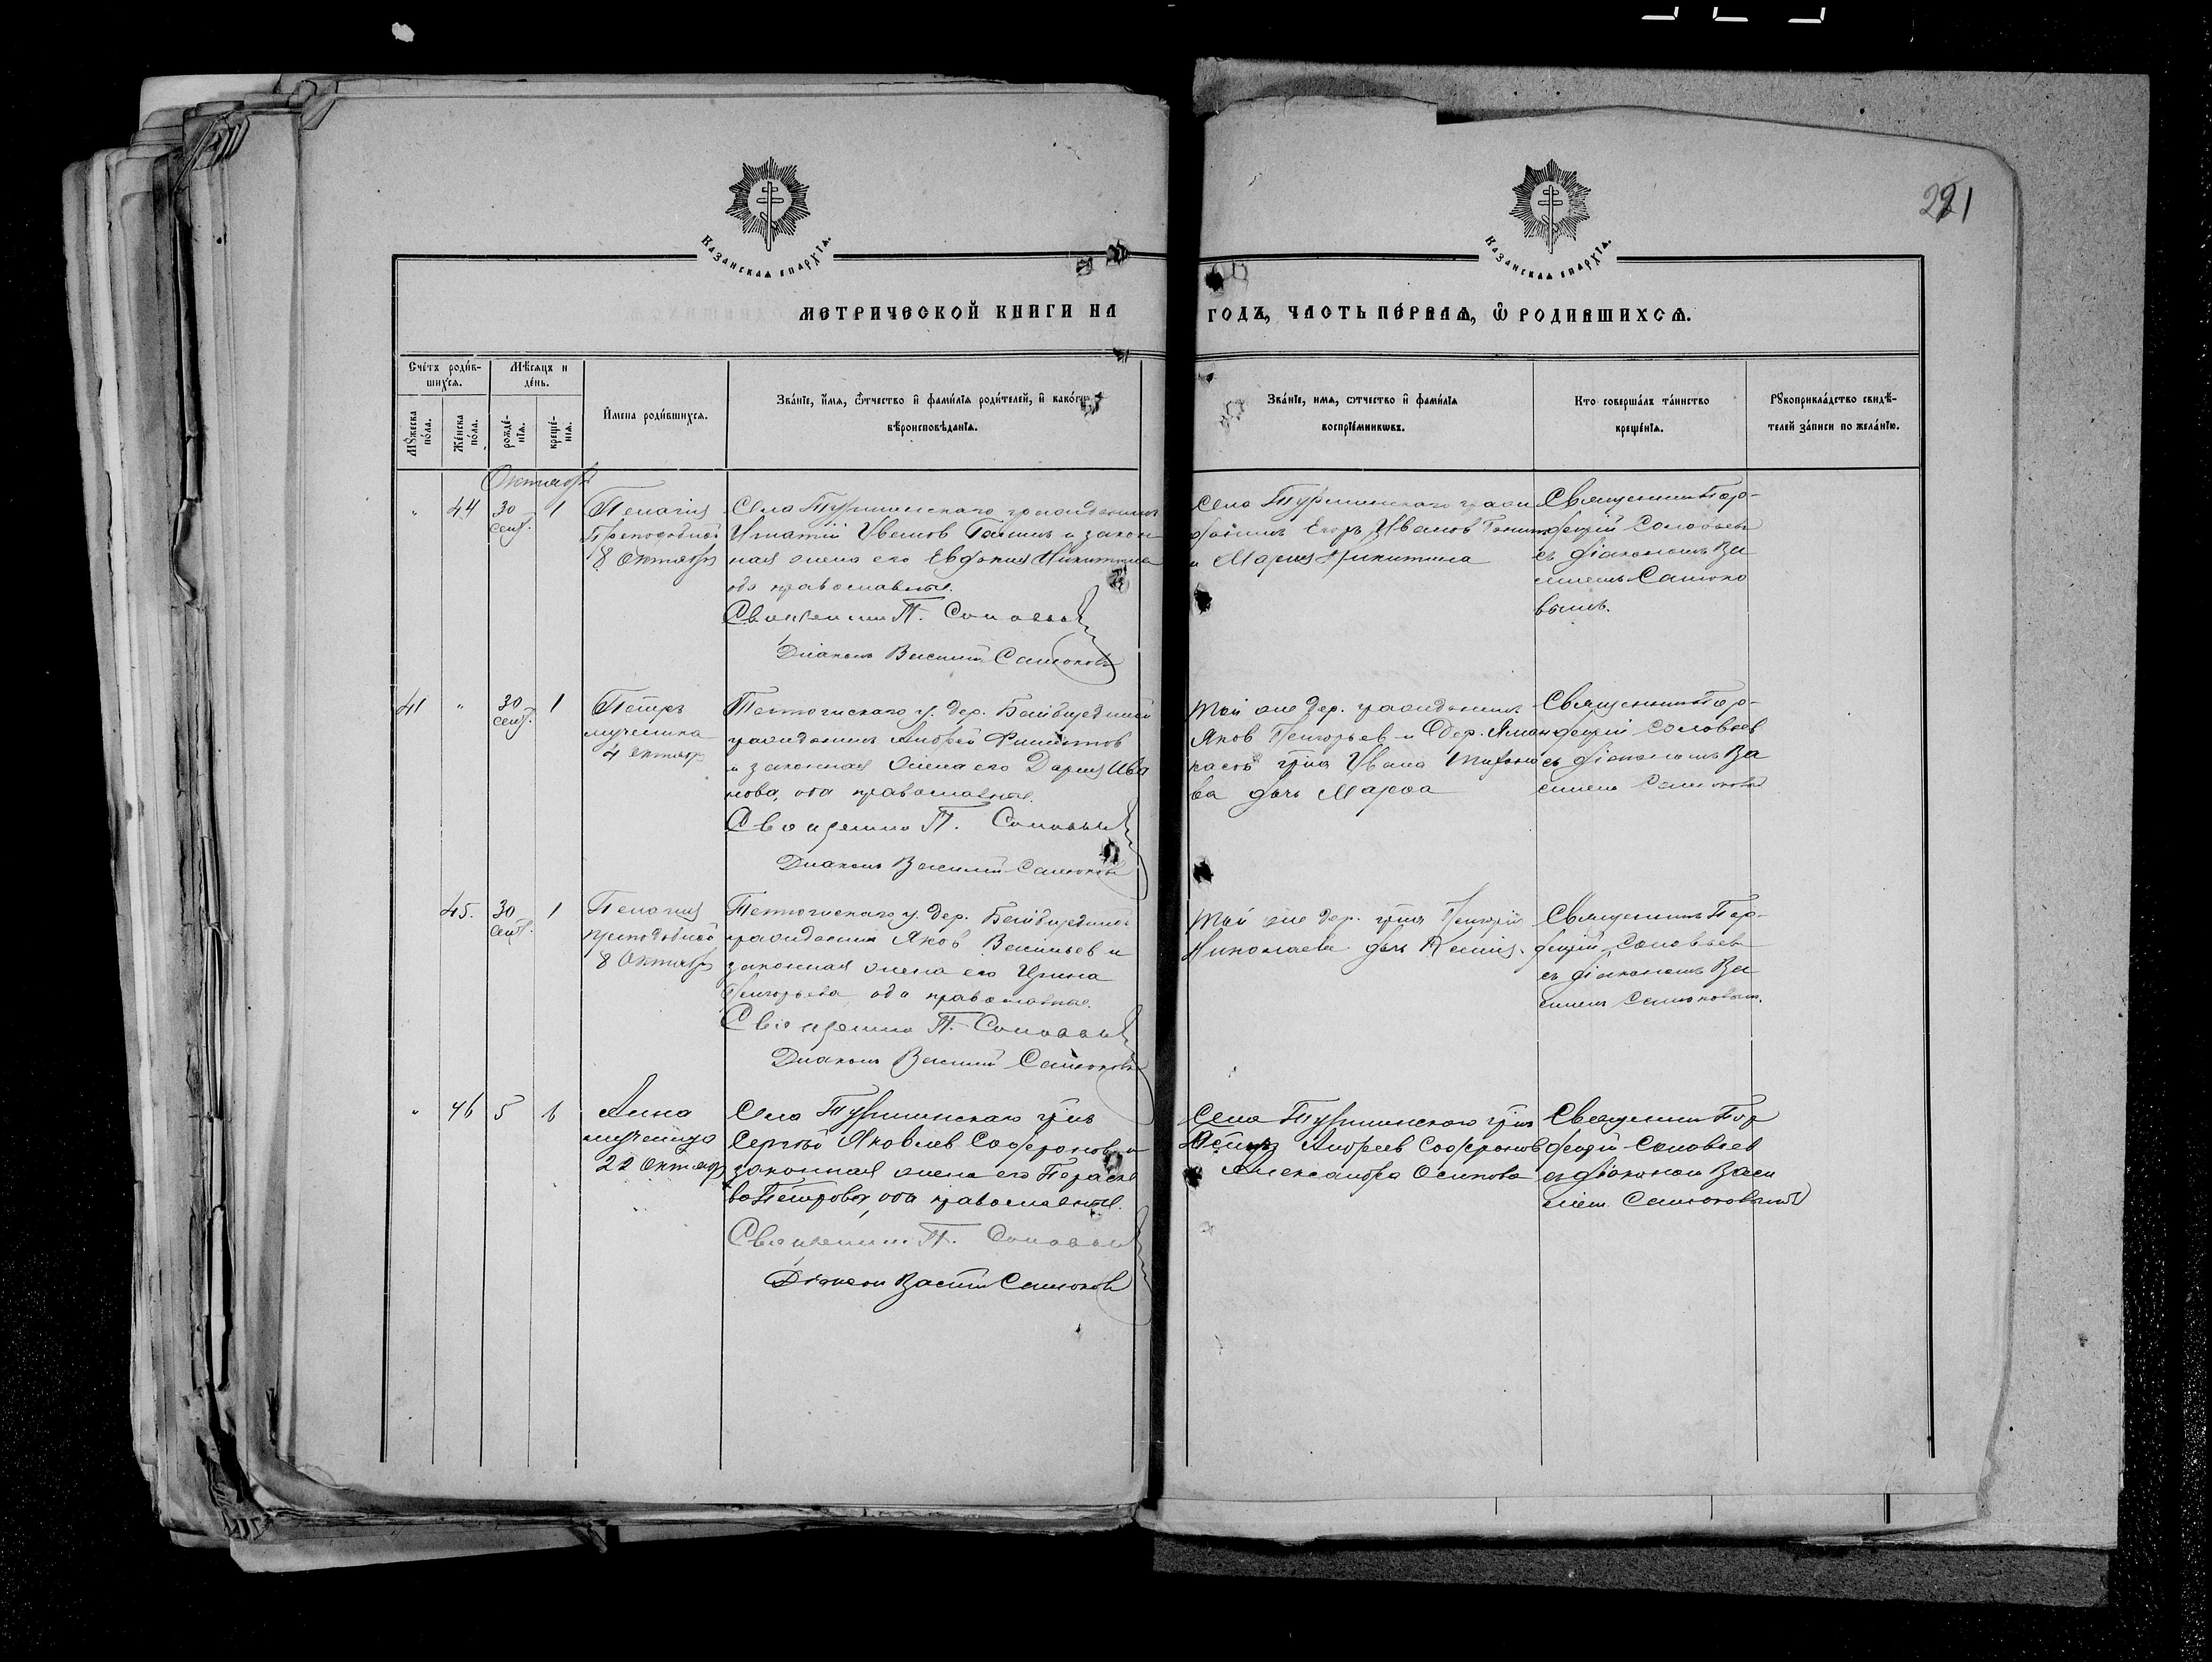 221
Казанская епархїя.
Казанская епархїя.
МЕТРИЧЕСКОЙ КНИГИ НА
ГОДЪ, ЧАСТЬ ПЕРВАЯ, Ѿ РОДИВШИХСЯ.
Счетъ родив-
шихся.
Мѣсяцъ и
день.
Мꙋжеска
пола.
Женска
пола.
рожде-
нїя.
креще-
нїя.
Имена родившихся.
Званїе, имя, ѿтчество и фамилїя родителей, и какогѡ
вѣроисповѣданїя.
Званїе, имя, ѡтчество и фамилїя
воспрїемникѡвъ.
Кто совершалъ таинство
крещенїя.
Рꙋкоприкладство свидѣ-
телей записи по желанїю.
Октябрь
" 44 30 1
сент.
Пелагия
Преподобной
8 Октября
Села Турминскаго гражданинъ
Игнатій Ивановъ и закон
ная жена его Евдокия Никитина
оба православные.
Священникъ П. Соловьевъ
Диаконъ Василий Самоковъ
Села Турминскаго граж
данинъ Егоръ Ивановъ
и Мария Никитина
Священникъ Пор-
фирій Соловьевъ
съ діакономъ Ва
силіемъ Самоко
вымъ.
41 " 30 1
сент.
Петръ
мученика
4 октября
Тетюшскаго у. дер.
гражданинъ Андрей Филиппов
и законная жена его Дария Ива
нова, оба православные.
Священникъ П. Соловьевъ
Диаконъ Василий Самоковъ
Той же дер. гражданинъ
Яков Григорьев и дер.
гр-на Ивана
ва дочь Марѳа
Священникъ Пор-
фирій Соловьев
съ діакономъ Ва
силіемъ Самоковым
45. 30 1
сент.
Пелагия
преподобной
8 Октября
Тетюшскаго у. дер.
гражданинъ Яков Васильев и
законная жена его Ирина
Григорьева оба православные.
Священникъ П. Соловьевъ
Диаконъ Василий Самоковъ
Той же дер. гр-на Григорія
Николаева дочь
Священникъ Пор-
фирій Соловьевъ
съ діакономъ Ва
силіемъ Самоковымъ.
" 46 5 6
Анна
мученицы
22 Октября
Села Турминскаго гр-нъ
Сергѣй Яковлев Софронов и
законная жена его Параске
ва Петрова, оба православные.
Священникъ П. Соловьевъ
Діакон Василий Самоковъ
Села Турминскаго гр-нъ
Андреев Софронов
Александра Осипова
Священникъ Пор
фирій Соловьев
съ діаконом Васи
ліем Самоковымъ